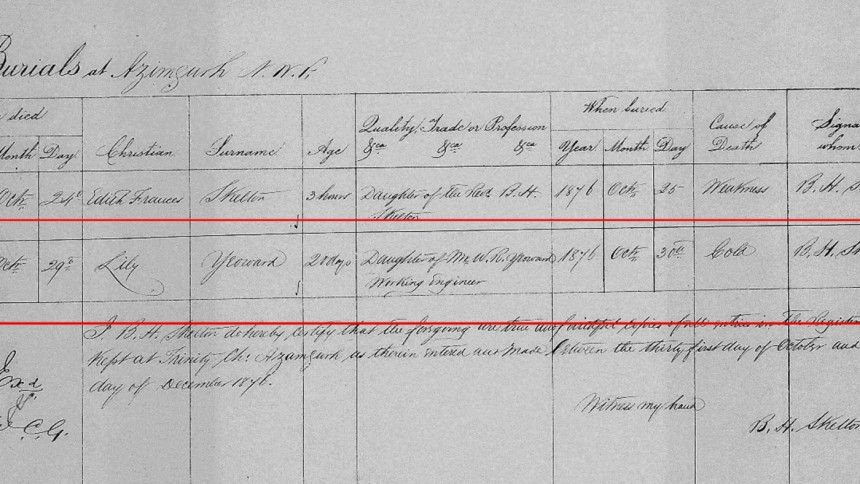 Burials at Azimgurh N.W.P.
died When buried
Month Day Christian Surname Age Quality, Trade or Profession &ca &ca &ca Year Month Day Cause of Death Signa whom
Octr 24th Edith Frances Skelton 3 hours Daughter of the Revd B. H. 1876 Octr 25 Weakness B. H. S
Skelton
Octr 29th Lily Yeoward 20 days Daughter of Mr W. R. Yeoward 1876 Octr 30th Cold B. H. Sk
Working Engineer
I B. H. Skelton do hereby certify that the foregoing are true and faithful copies of all entries in the Register
kept at Trinity Ch: Azamgurh as therein entered and made between the thirty first day of October and
day of December 1876.
Exd
C.G.
Witness my hand
B. H. Skelton